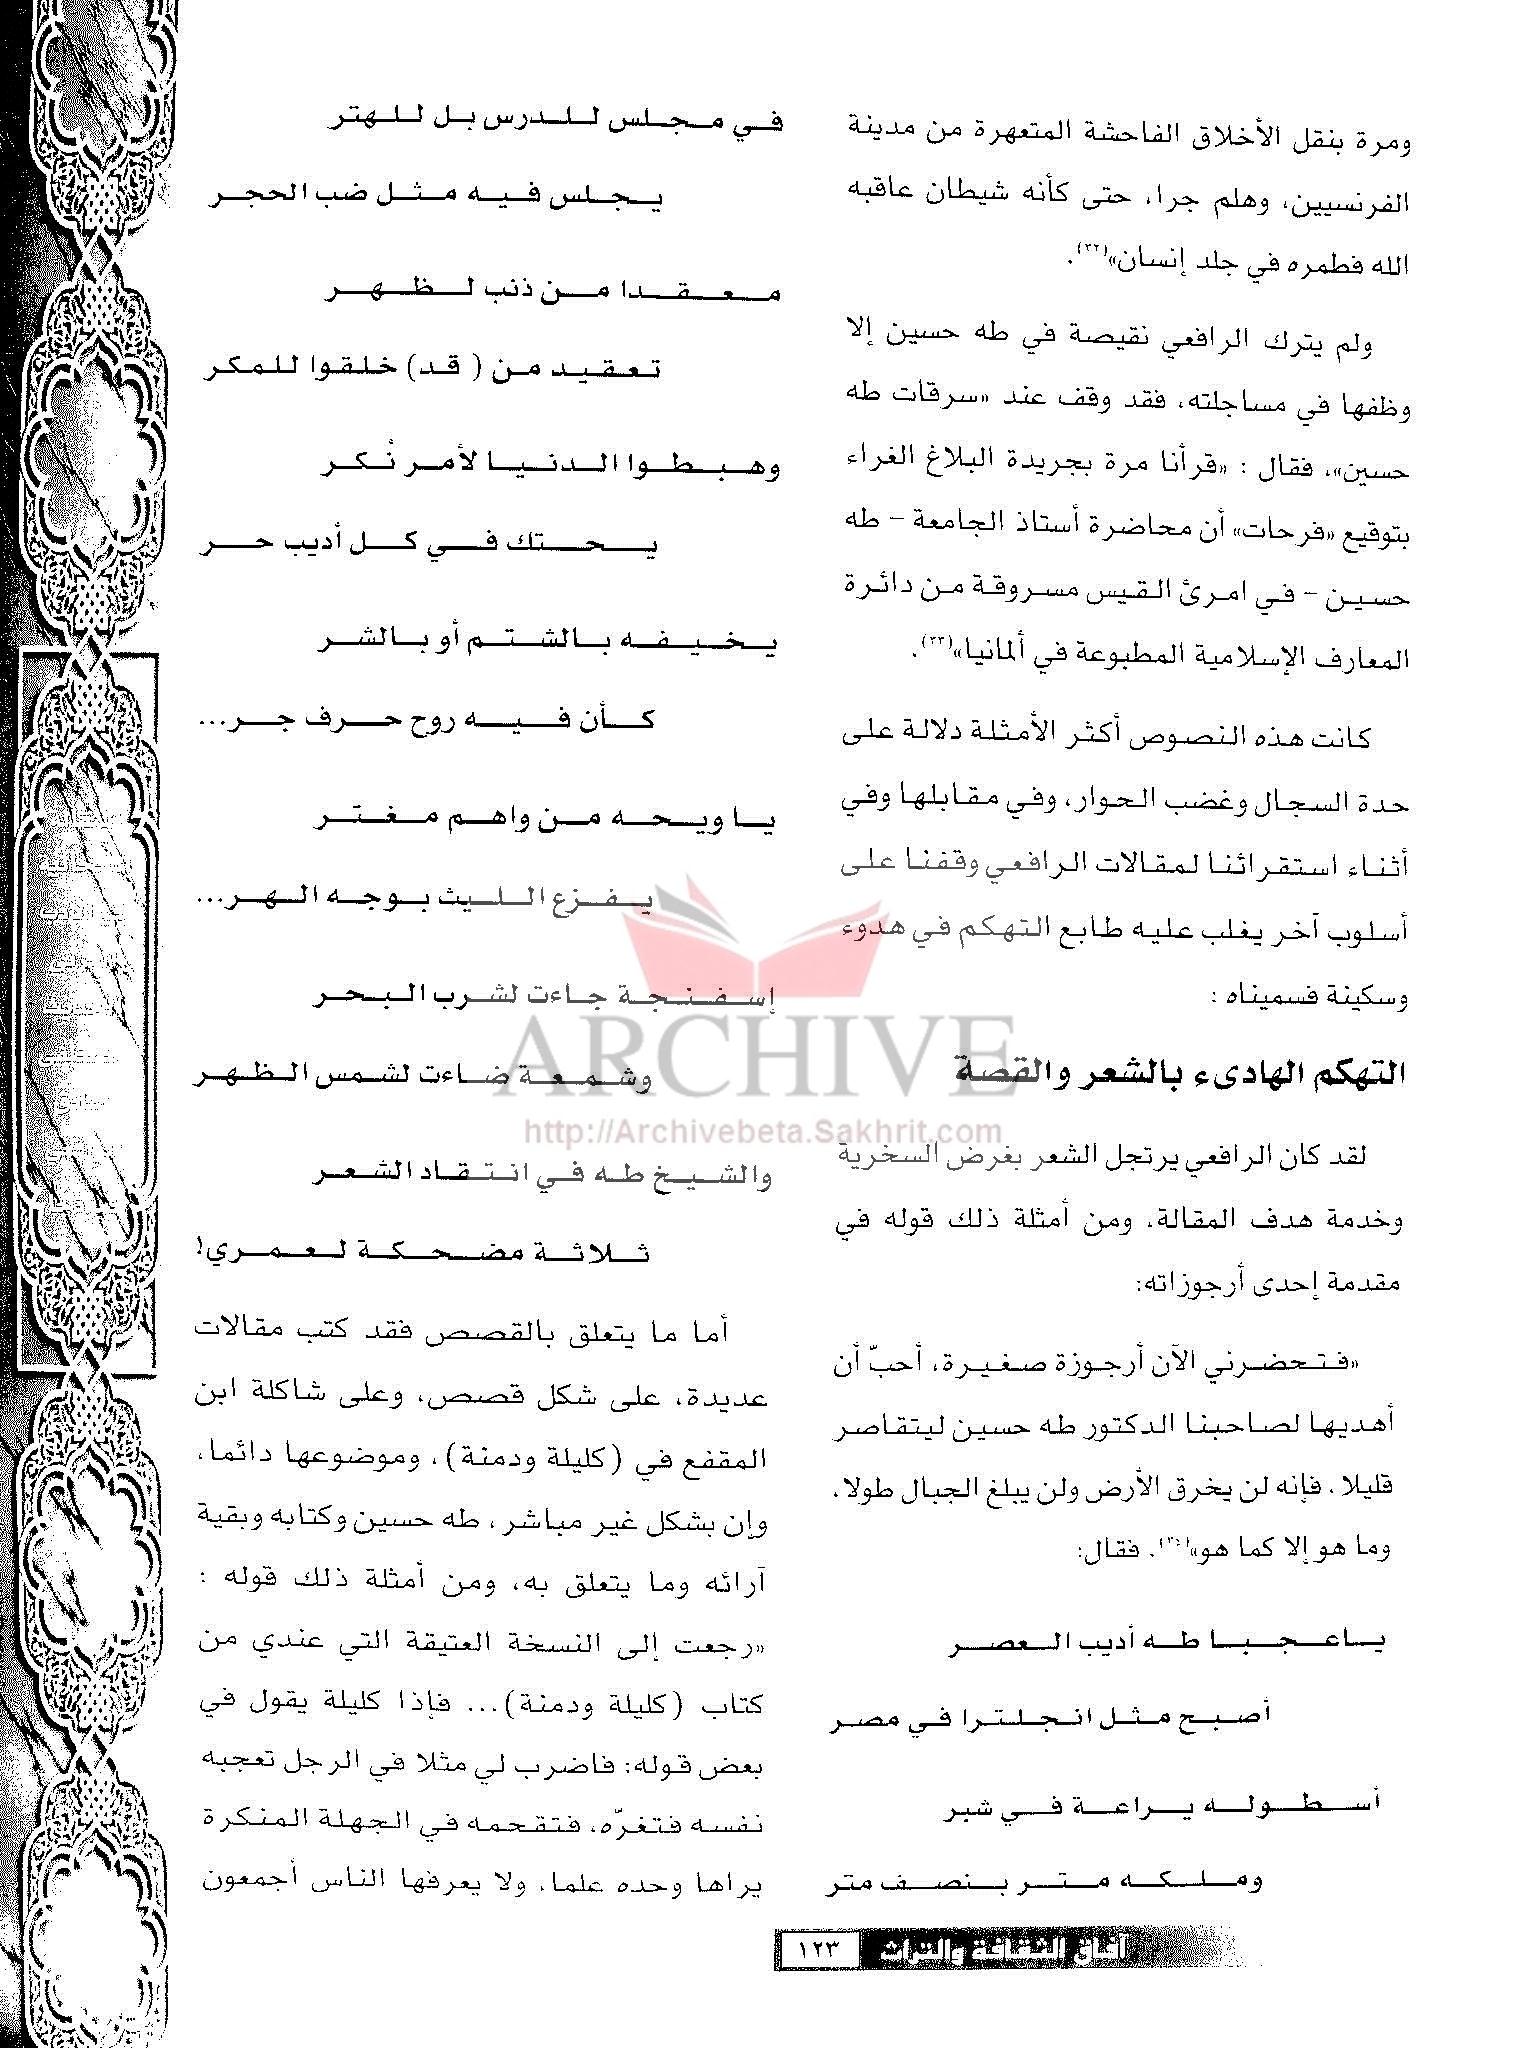 ومرة بنقل الأخلاق الفاحشة المتعهرة من مدينة
الفرنسيين، وهلم جرا، حتى كأنه شيطان عاقبه
الله فطمره في جلد إنسان»(٣٢).
ولم يترك الرافعي نقيصة في طه حسين إلا
وظفها في مساجلته، فقد وقف عند «سرقات طه
حسين»، فقال : «قرأنا مرة بجريدة البلاغ الغراء
بتوقيع «فرحات» أن محاضرة أستاذ الجامعة – طه
حسين – في امرئ القيس مسروقة من دائرة
المعارف الإسلامية المطبوعة في ألمانيا»(٣٣).
كانت هذه النصوص أكثر الأمثلة دلالة على
حدة السجال وغضب الحوار، وفي مقابلها وفي
أثناء استقرائنا لمقالات الرافعي وقفنا على
أسلوب آخر يغلب عليه طابع التهكم في هدوء
وسكينة فسميناه :
التهكم الهادىء بالشعر والقصة
لقد كان الرافعي يرتجل الشعر بغرض السخرية
وخدمة هدف المقالة، ومن أمثلة ذلك قوله في
مقدمة إحدى أرجوزاته:
«فتحضرني الآن أرجوزة صغيرة، أحبّ أن
أهديها لصاحبنا الدكتور طه حسين ليتقاصر
قليلا، فإنه لن يخرق الأرض ولن يبلغ الجبال طولا،
وما هو إلا كما هو»، فقال:
ياعجبا طه أديب العصر
أصبح مثل انجلترا في مصر
أسطوله يراعة في شبر
وملكه متر بنصف متر
في مجلس للدرس بل للهتر
يجلس فيه مثل ضب الحجر
معقدا من ذنب لظهر
تعقيد من ( قد) خلقوا للمكر
وهبطوا الدنيا لأمر نُكر
يحتك في كل أديب حر
يخيفه بالشتم أو بالشر
كأن فيه روح حرف جر...
يا ويحه من واهم مغتر
يفزع الليث بوجه الهر...
إسفنجة جاءت لشرب البحر
وشمعة ضاءت لشمس الظهر
والشيخ طه في انتقاد الشعر
ثلاثة مضحكة لعمري!
أما ما يتعلق بالقصص فقد كتب مقالات
عديدة، على شكل قصص، وعلى شاكلة ابن
المقفع في (كليلة ودمنة)، وموضوعها دائما،
وإن بشكل غير مباشر، طه حسين وكتابه وبقية
آرائه وما يتعلق به، ومن أمثلة ذلك قوله :
«رجعت إلى النسخة العتيقة التي عندي من
كتاب (كليلة ودمنة)... فإذا كليلة يقول في
بعض قوله: فاضرب لي مثلا في الرجل تعجبه
نفسه فتغرّه، فتقحمه في الجهلة المنكرة
يراها وحده علما، ولا يعرفها الناس أجمعون
ARCHIVE
http://Archivebeta.Sakhrit.com
آفاق الثقافة والتراث ١٢٣